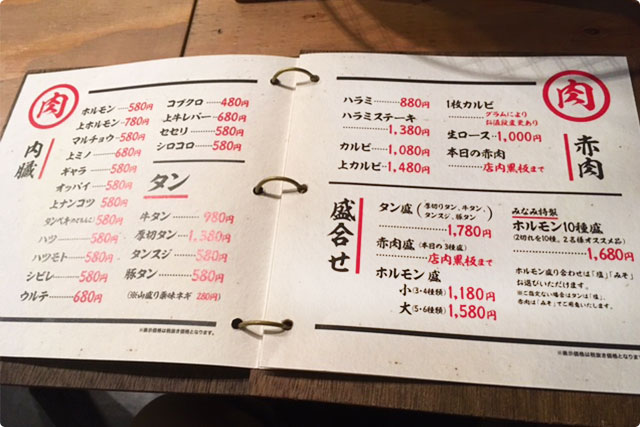 肉
内臓
ホルモン……580円
上ホルモン…780円
マルチョウ…580円
上ミノ……680円
ギャラ……580円
オッパイ……580円
上ナンコツ…580円
タンベキ(のどなんこつ)580円
ハツ………580円
ハツモト……580円
シビレ……580円
ウルテ……680円
コブクロ……480円
上牛レバー…680円
セセリ………580円
シロコロ……580円
タン
牛タン………980円
厚切タン…1,380円
タンスジ……580円
豚タン………580円
(※山盛り薬味ネギ 280円)
※表示価格は税抜き価格となります。
肉
赤肉
ハラミ……880円
ハラミステーキ
………1,380円
カルビ……1,080円
上カルビ…1,480円
1枚カルビ
………グラムにより
お値段変更あり
生ロース…1,000円
本日の赤肉
………店内黒板まで
盛合せ
タン盛(厚切りタン、牛タン、
タンスジ、豚タン)
………1,780円
赤肉盛(本日の3種盛)
………店内黒板まで
ホルモン盛
小(3・4種類)1,180円
大(5・6種類)1,580円
みなみ特製
ホルモン10種盛
(2切れを10種。2名様オススメ品)
………1,680円
ホルモン盛り合わせは「塩」「みそ」
お選びいただけます。
※ご指定ない場合はタンは「塩」、
赤肉は「みそ」でご用意いたします。
※表示価格は税抜き価格となります。